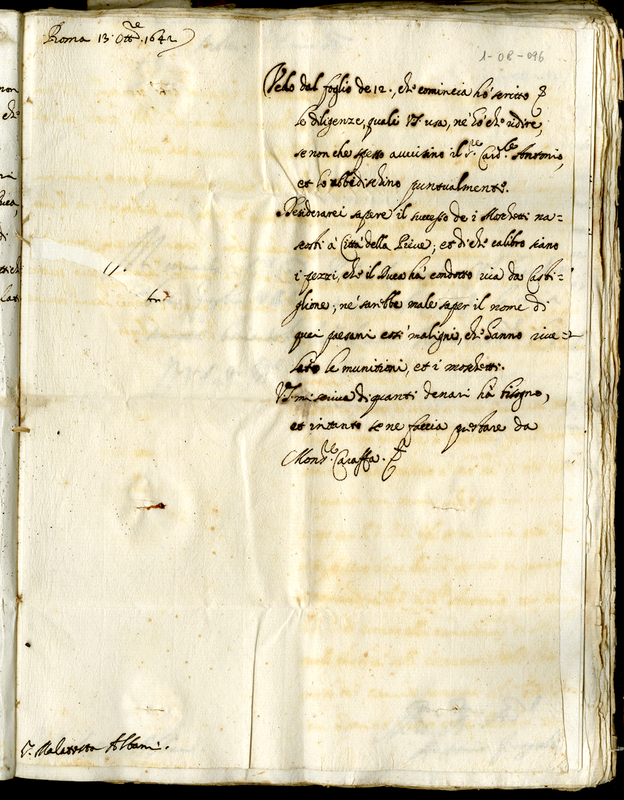 Roma 13 Ott.re 1642
1-08-096
Vedo dal foglio de 12., che comincia hò scritto
le diligenze, quali VS usa, ne hò che ridire,
se non che spesso avvisino il S.re Card.le Antonio,
et lo ubbidischino puntualmente.
Desiderarei sapere il successo de i Moschetti na=
scosti à Città della Pieve, et di che calibro siano
i pezzi, che il Duca hà condotto via da Casti=
glione, ne sarebbe male saper il nome di
quei paesani così maligni, che hanno rive=
lato le munitioni, et i moschetti.
VS mi scriva di quanti denari hà bisogno,
et intanto se ne faccia prestare da
Mons.re Caraffa.
S. Malatesta Albani.